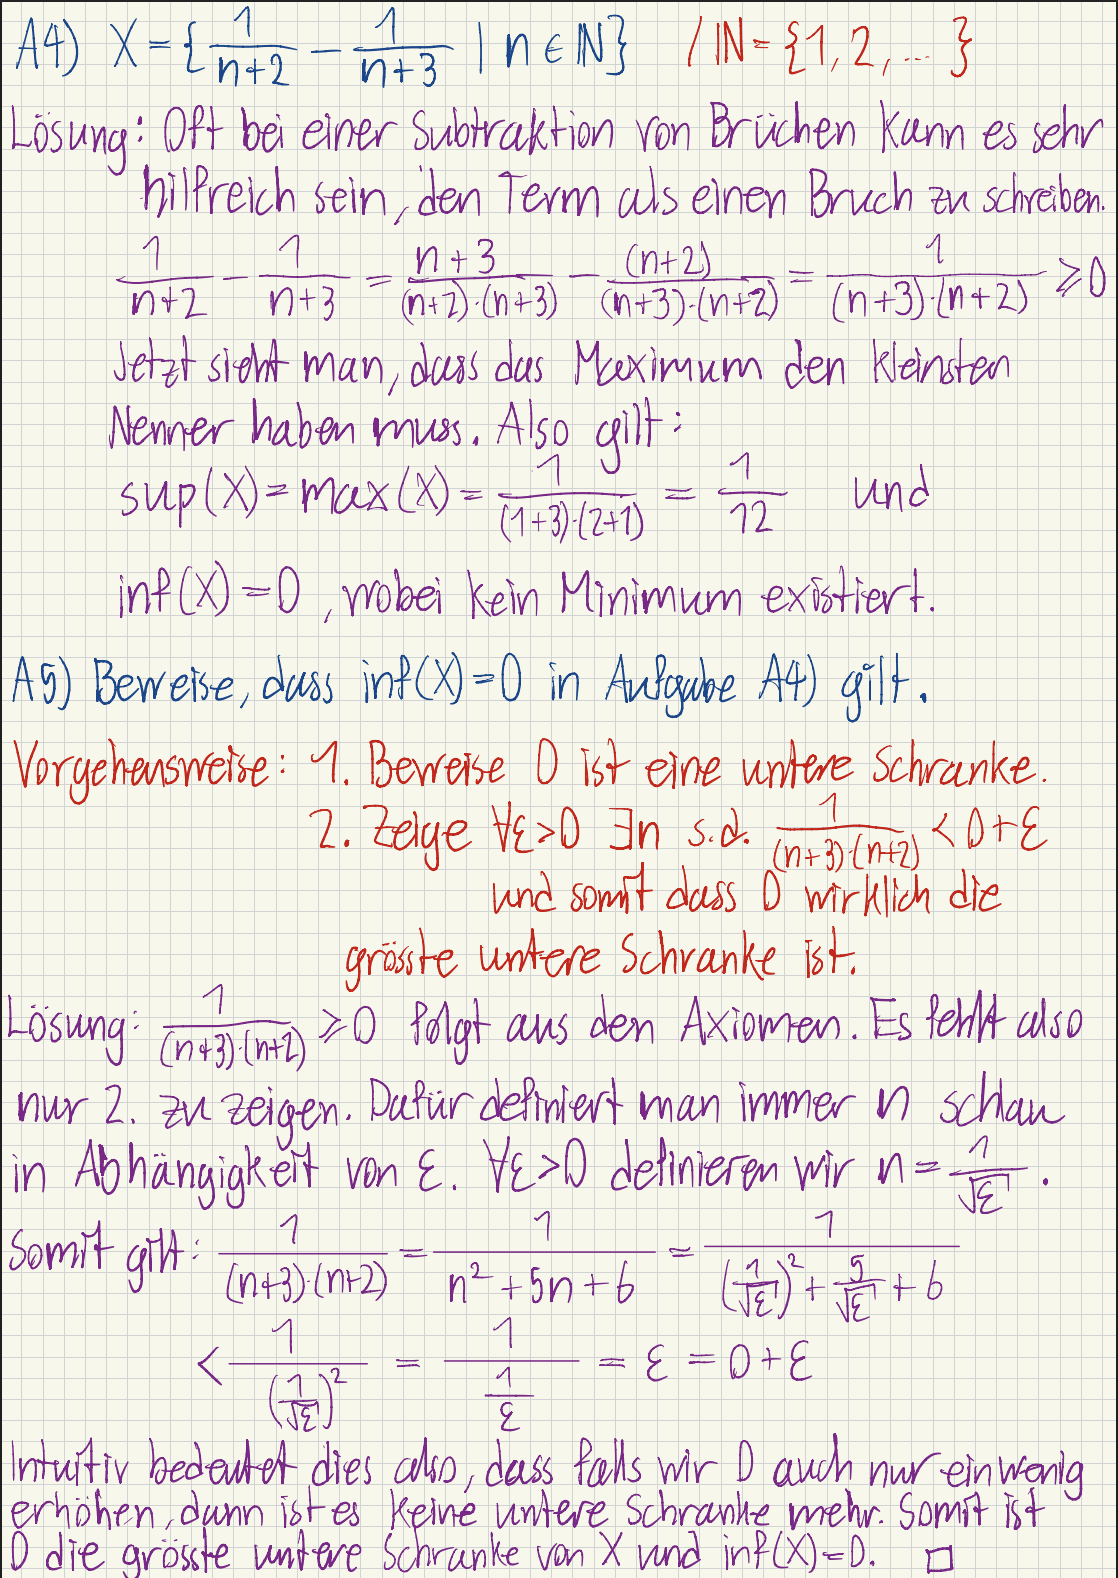 A4) X = { 1/(n+2) − 1/(n+3) | n ∈ ℕ } / ℕ = {1, 2, ... }
Lösung: Oft bei einer Subtraktion von Brüchen kann es sehr
hilfreich sein, den Term als einen Bruch zu schreiben.
1/(n+2) − 1/(n+3) = (n+3)/((n+2)·(n+3)) − (n+2)/((n+3)·(n+2)) = 1/((n+3)·(n+2)) ⩾ 0
Jetzt sieht man, dass das Maximum den kleinsten
Nenner haben muss. Also gilt:
sup(X) = max(X) = 1/((1+3)·(2+1)) = 1/12 und
inf(X) = 0, wobei kein Minimum existiert.
A5) Beweise, dass inf(X) = 0 in Aufgabe A4) gilt.
Vorgehensweise: 1. Beweise 0 ist eine untere Schranke.
2. Zeige ∀ε>0 ∃n s.d. 1/((n+3)·(n+2)) < 0+ε
und somit dass 0 wirklich die
grösste untere Schranke ist.
Lösung: 1/((n+3)·(n+2)) ⩾ 0 folgt aus den Axiomen. Es fehlt also
nur 2. zu zeigen. Dafür definiert man immer n schlau
in Abhängigkeit von ε. ∀ε>0 definieren wir n = 1/√ε.
Somit gilt: 1/((n+3)·(n+2)) = 1/(n²+5n+6) = 1/((1/√ε)² + 5/√ε + 6)
< 1/((1/√ε)²) = 1/(1/ε) = ε = 0+ε
Intuitiv bedeutet dies also, dass falls wir 0 auch nur ein wenig
erhöhen, dann ist es keine untere Schranke mehr. Somit ist
0 die grösste untere Schranke von X und inf(X)=0. □